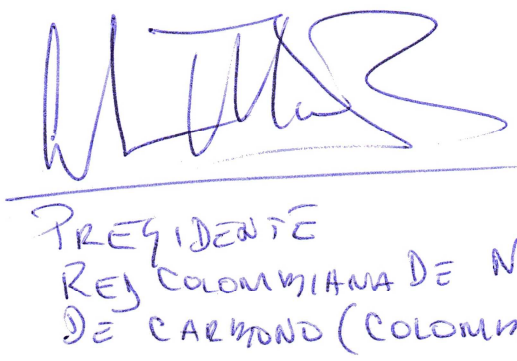 PRESIDENTE
RED COLOMBIANA DE N
DE CARBONO (COLOMB